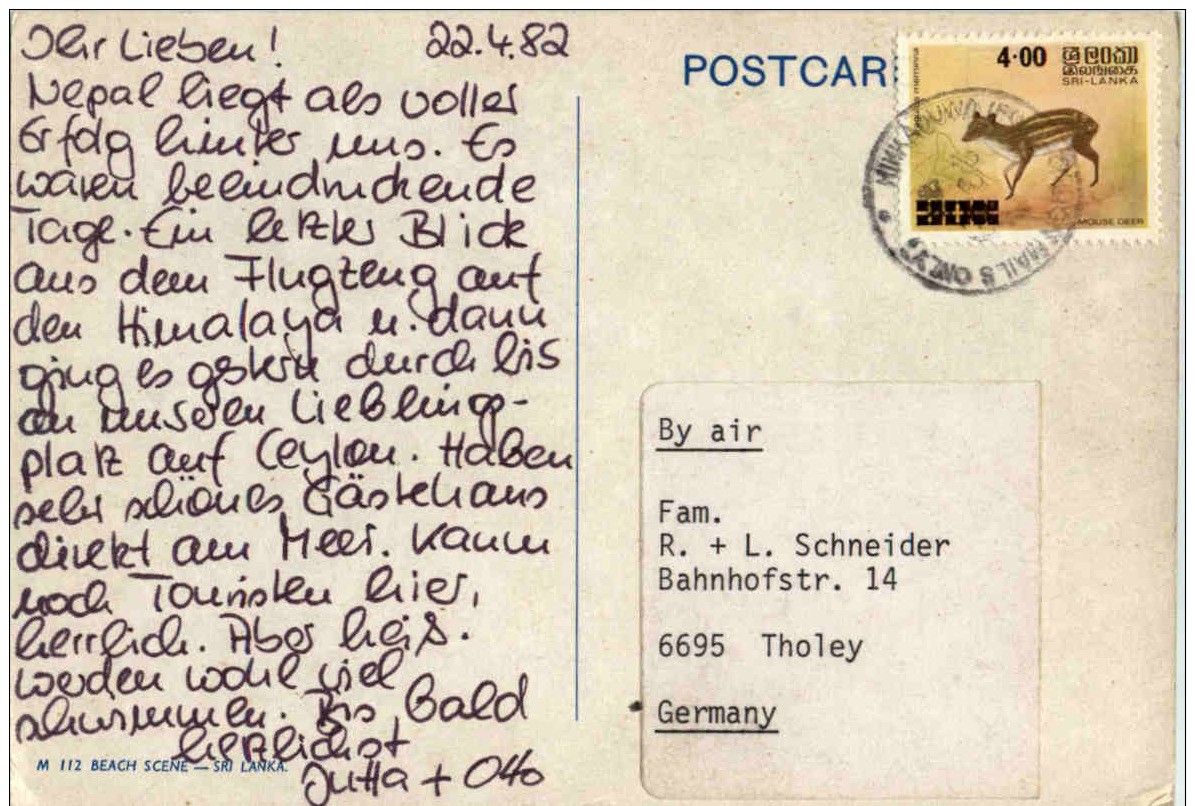 Ihr Lieben! 22.4.82
Nepal liegt als voller
Erfolg hinter uns. Es
waren beeindruckende
Tage. Ein letzter Blick
aus dem Flugzeug auf
den Himalaya u. dann
ging es gestern durch bis
an unseren Lieblings-
platz auf Ceylon. Haben
sehr schönes Gästehaus
direkt am Meer. Kaum
noch Touristen hier,
herrlich. Aber heiß.
werden wohl viel
schwimmen. Bis Bald
herzlichst
Jutta + Otto
M 112 BEACH SCENE — SRI LANKA.
POSTCAR
4.00
ශ්‍රී ලංකා
இலங்கை
SRI-LANKA
MOUSE DEER
MAILS ONLY
By air
Fam.
R. + L. Schneider
Bahnhofstr. 14
6695 Tholey
Germany